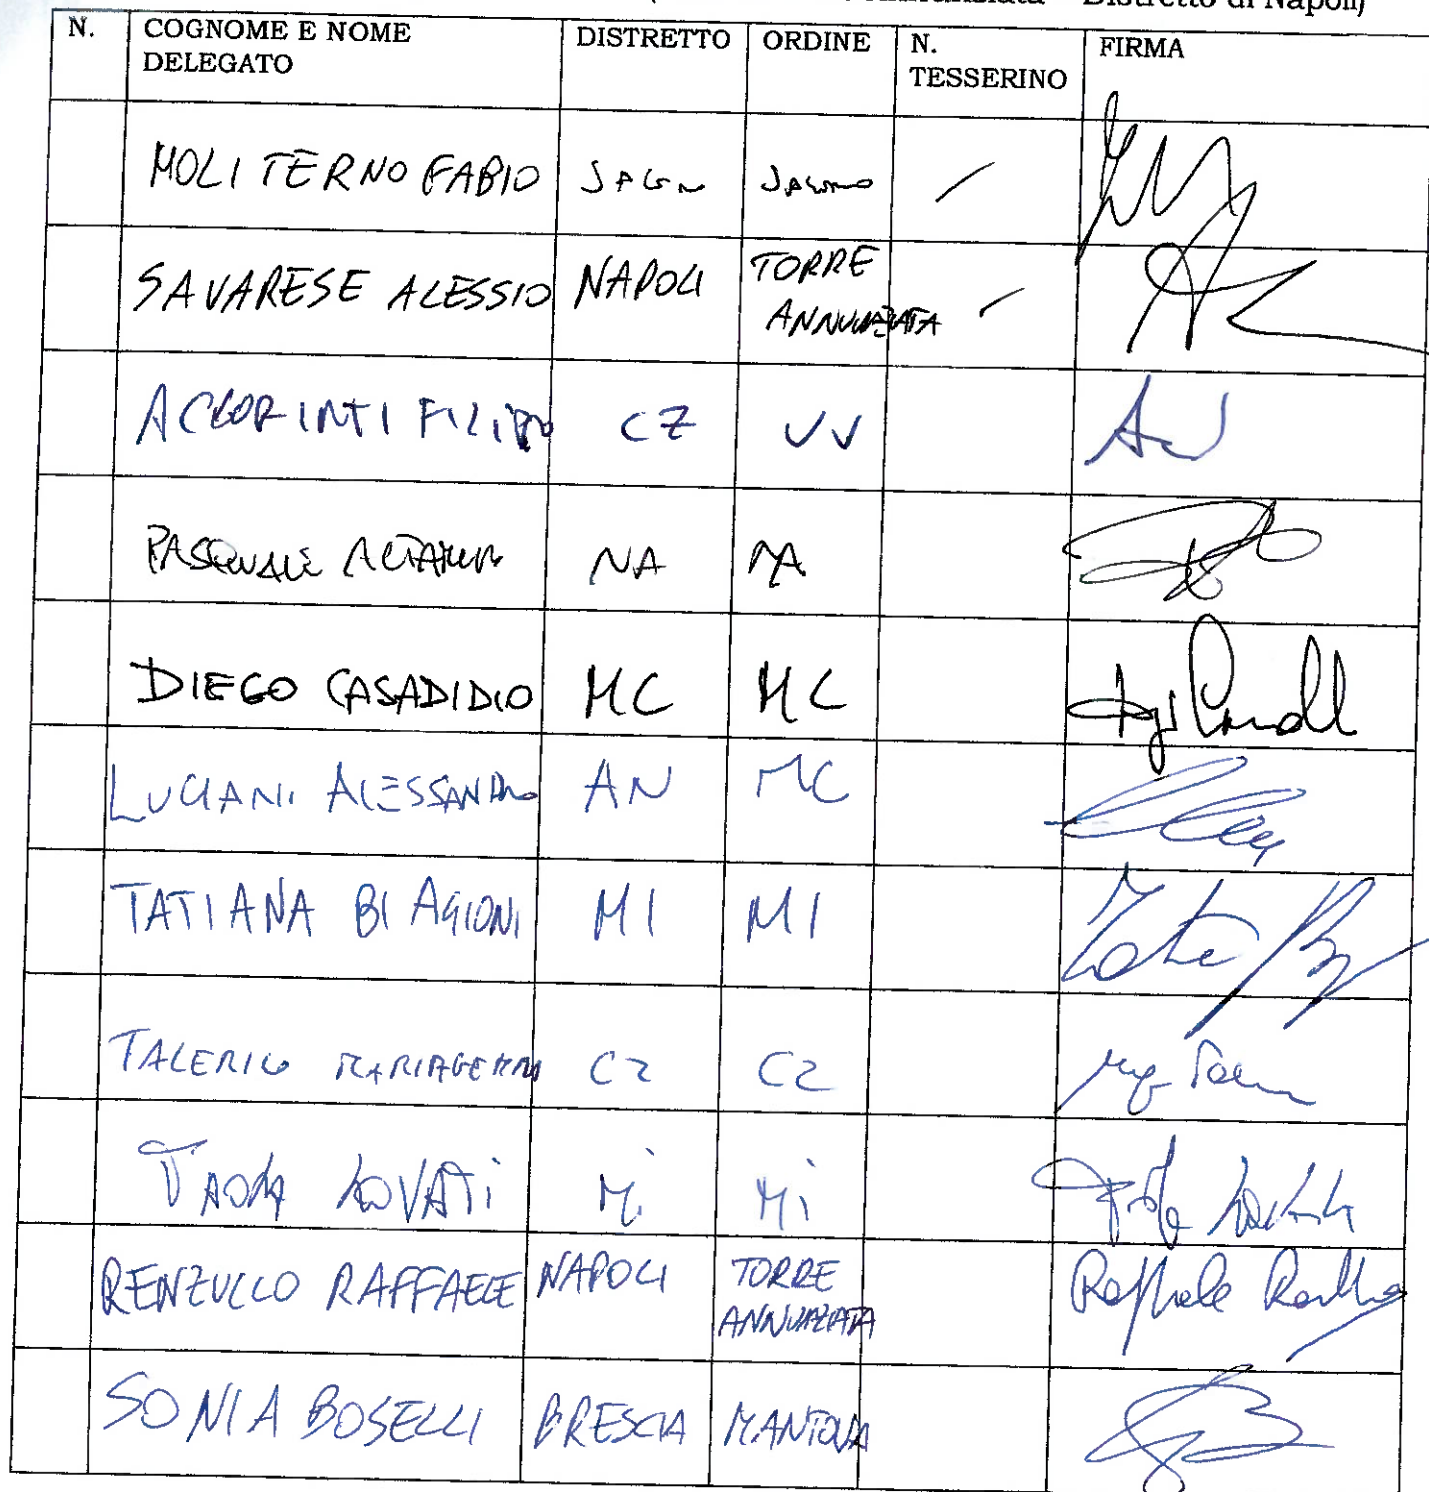 Distretto di Napoli)
N. COGNOME E NOME DELEGATO DISTRETTO ORDINE N. TESSERINO FIRMA
MOLITERNO FABIO
SAVARESE ALESSIO NAPOLI TORRE ANNUNZIATA
ACCORINTI FILIPPO CZ VV
PASQUALE NA NA
DIEGO CASADIDIO MC MC
LUCIANI ALESSANDRO AN MC
TATIANA BIAGIONI MI MI
TALERICO MARIAGEMMA CZ CZ
PAOLA LOVATI Mi Mi
RENZULLO RAFFAELE NAPOLI TORRE ANNUNZIATA Raffaele Renzullo
SONIA BOSELLI BRESCIA MANTOVA